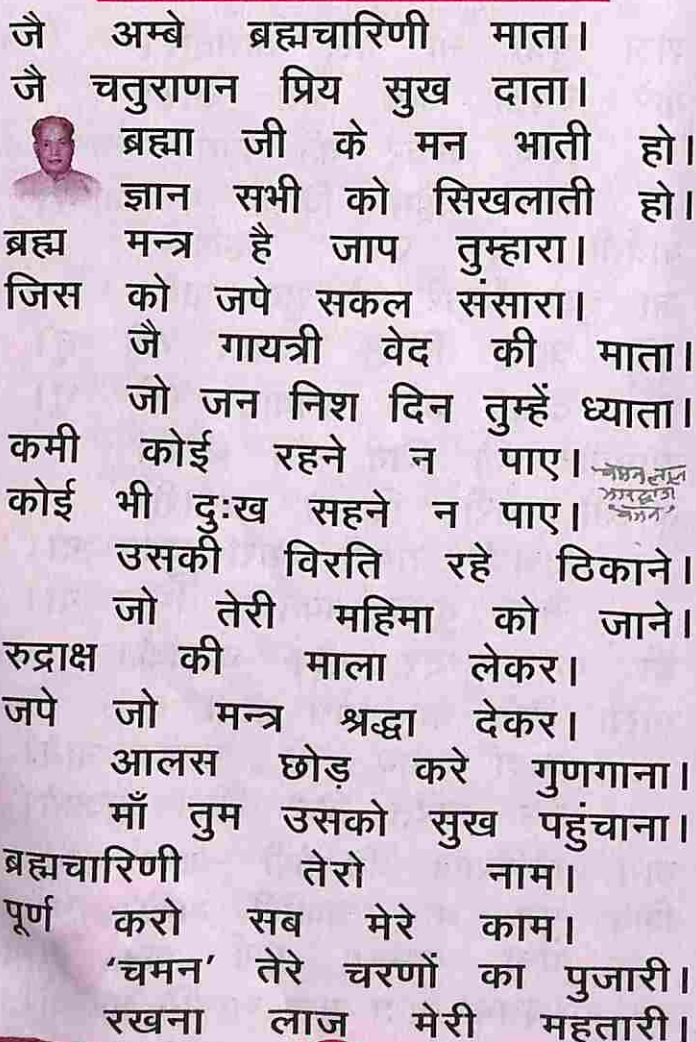 जै अम्बे ब्रह्मचारिणी माता।
जै चतुराणन प्रिय सुख दाता।
ब्रह्मा जी के मन भाती हो।
ज्ञान सभी को सिखलाती हो।
ब्रह्म मन्त्र है जाप तुम्हारा।
जिस को जपे सकल संसारा।
जै गायत्री वेद की माता।
जो जन निश दिन तुम्हें ध्याता।
कमी कोई रहने न पाए।
चमन लाल
भारद्वाज
'चमन'
कोई भी दुःख सहने न पाए।
उसकी विरति रहे ठिकाने।
जो तेरी महिमा को जाने।
रुद्राक्ष की माला लेकर।
जपे जो मन्त्र श्रद्धा देकर।
आलस छोड़ करे गुणगाना।
माँ तुम उसको सुख पहुंचाना।
ब्रह्मचारिणी तेरो नाम।
पूर्ण करो सब मेरे काम।
'चमन' तेरे चरणों का पुजारी।
रखना लाज मेरी महतारी।